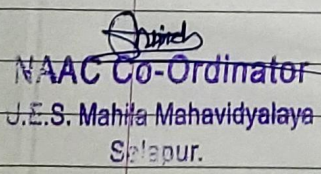 NAAC Co-Ordinator
J.E.S. Mahila Mahavidyalaya
Solapur.